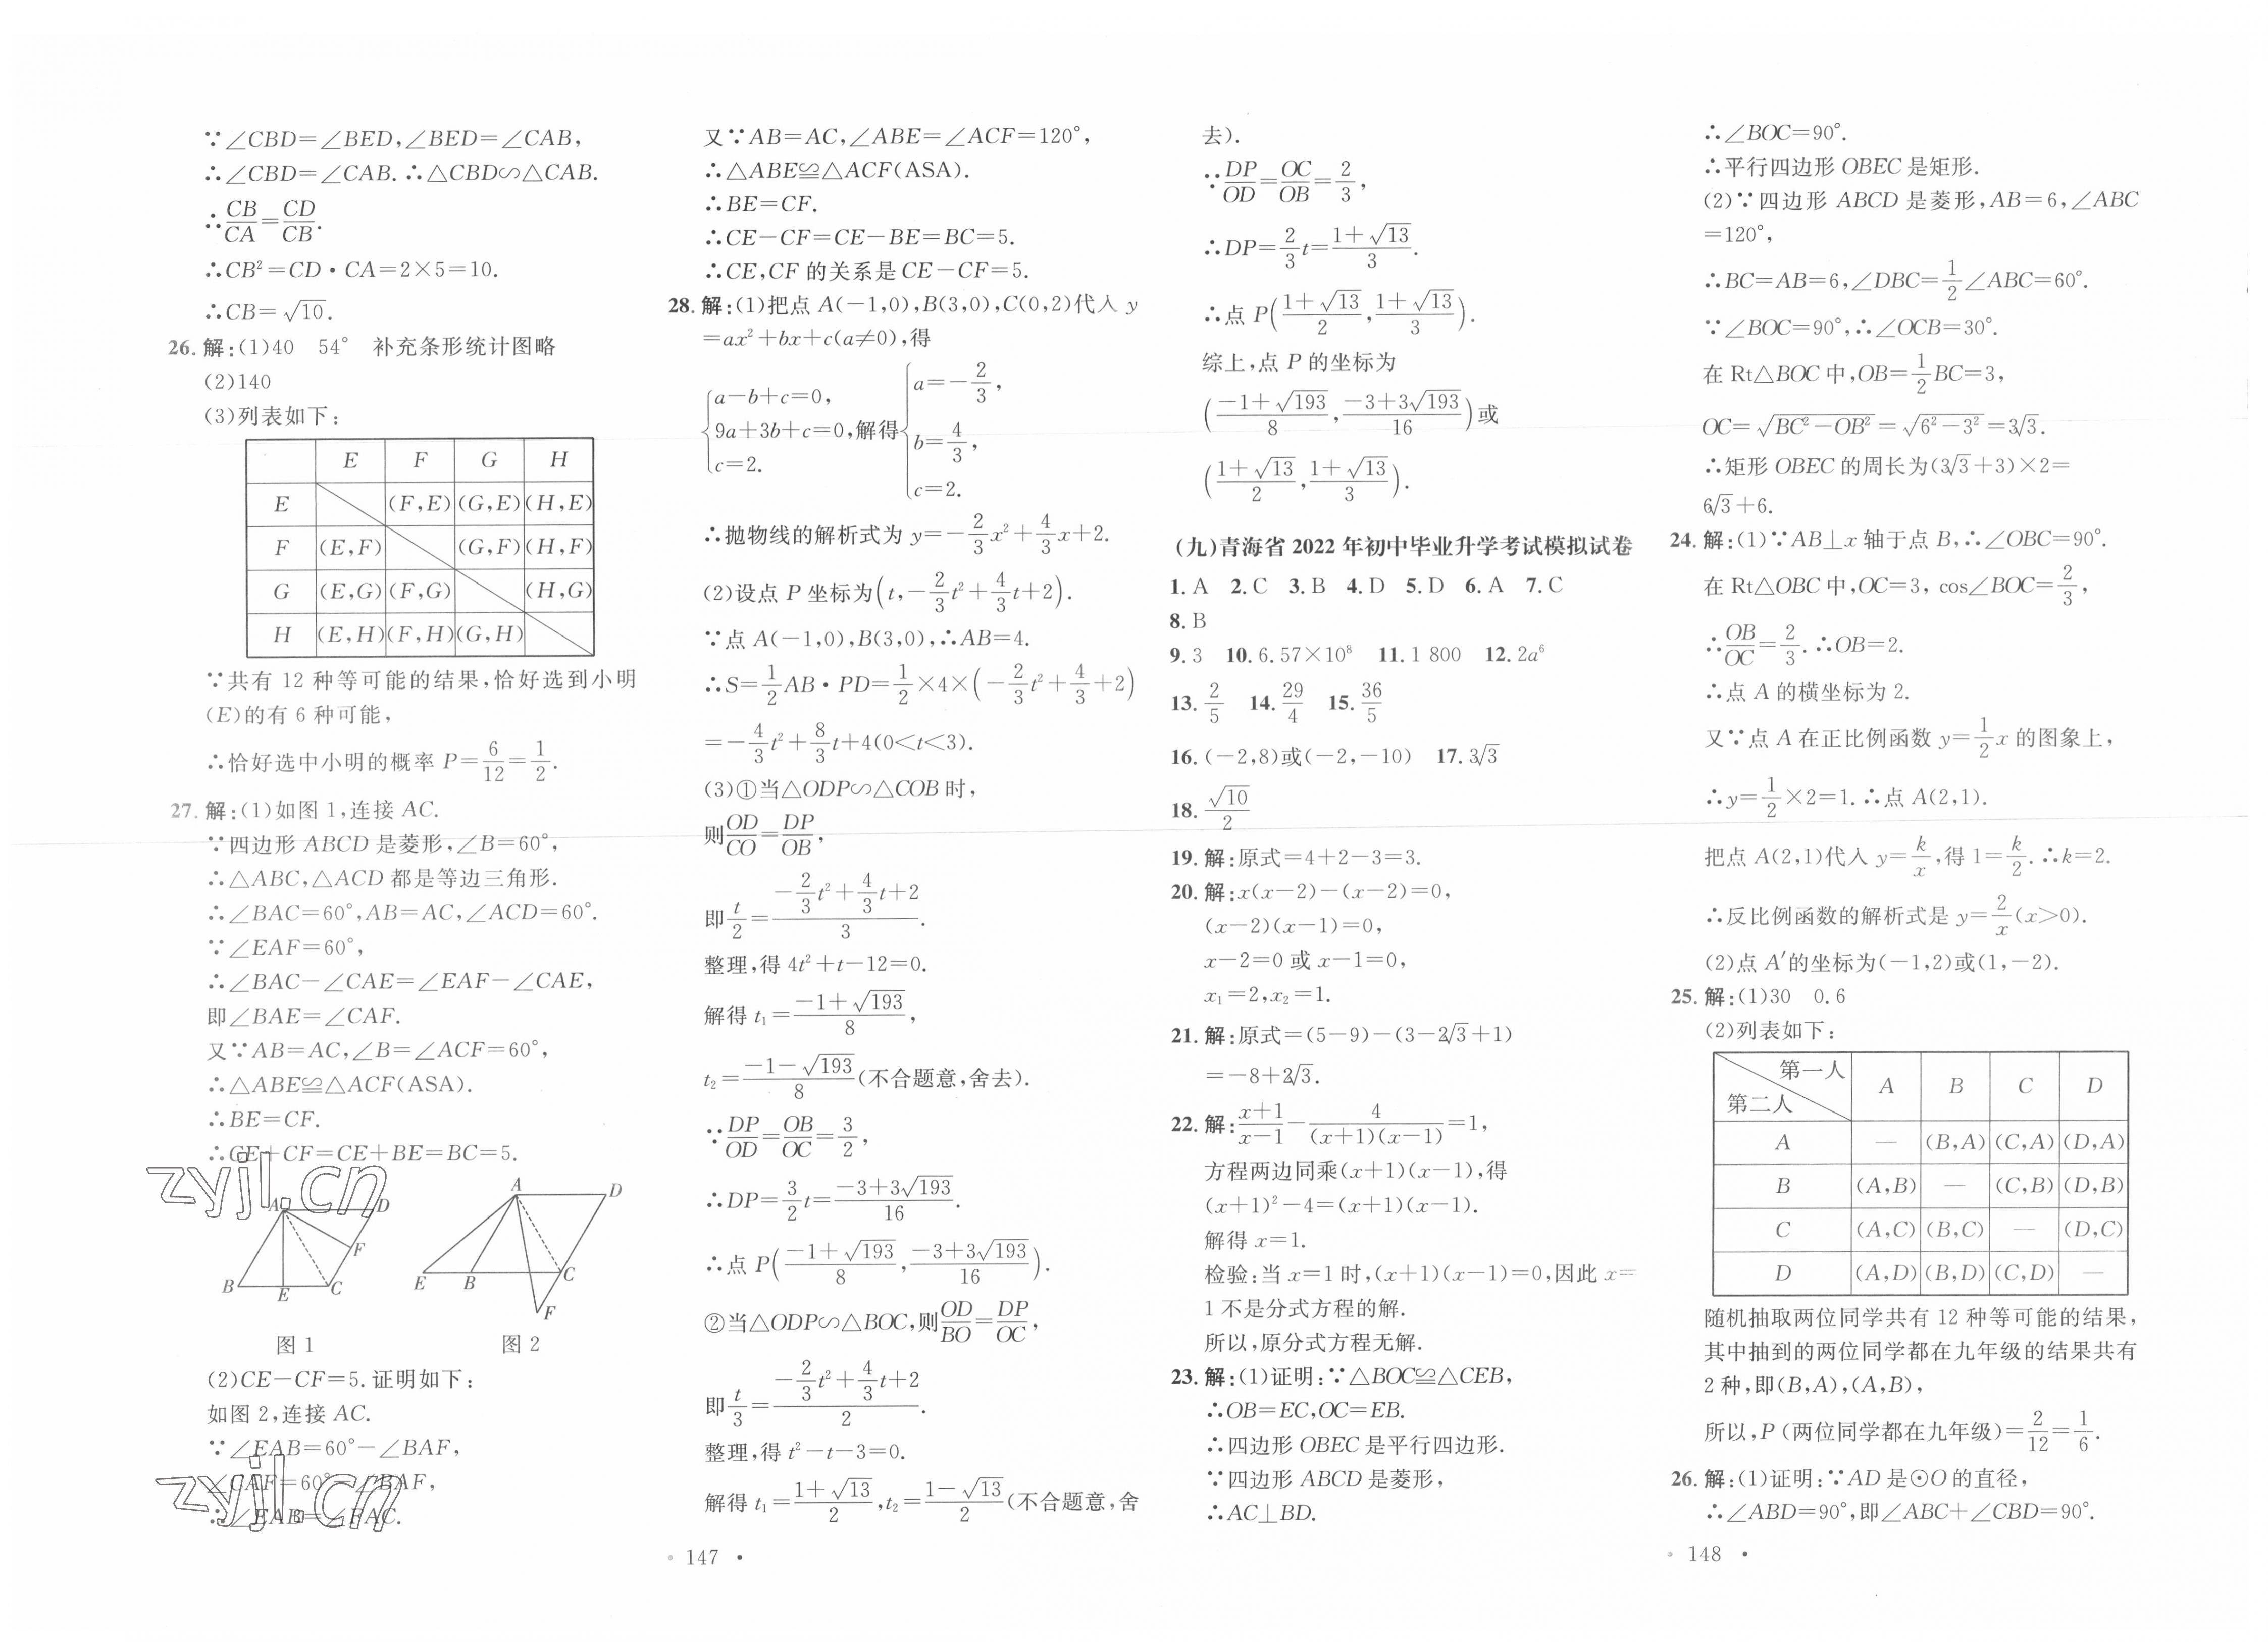 ∵∠CBD=∠BED,∠BED=∠CAB,
∴∠CBD=∠CAB.∴△CBD∽△CAB.
∴CB/CA=CD/CB.
∴CB²=CD·CA=2×5=10.
∴CB=√10.
26.解:(1)40 54° 补充条形统计图略
(2)140
(3)列表如下:
E F G H
E (F,E) (G,E) (H,E)
F (E,F) (G,F) (H,F)
G (E,G) (F,G) (H,G)
H (E,H) (F,H) (G,H)
∵共有 12 种等可能的结果,恰好选到小明
(E)的有 6 种可能,
∴恰好选中小明的概率 P=6/12=1/2.
27.解:(1)如图 1,连接 AC.
∵四边形 ABCD 是菱形,∠B=60°,
∴△ABC,△ACD 都是等边三角形.
∴∠BAC=60°,AB=AC,∠ACD=60°.
∵∠EAF=60°,
∴∠BAC-∠CAE=∠EAF-∠CAE,
即∠BAE=∠CAF.
又∵AB=AC,∠B=∠ACF=60°,
∴△ABE≌△ACF(ASA).
∴BE=CF.
∴CE+CF=CE+BE=BC=5.
zyjl.cn
A D F B E C
A D E B C F
图 1 图 2
(2)CE-CF=5.证明如下:
如图 2,连接 AC.
∵∠EAB=60°-∠BAF,
∠CAF=60°-∠BAF,
zyjl.cn
∴∠EAB=∠FAC.
又∵AB=AC,∠ABE=∠ACF=120°,
∴△ABE≌△ACF(ASA).
∴BE=CF.
∴CE-CF=CE-BE=BC=5.
∴CE,CF 的关系是 CE-CF=5.
28.解:(1)把点 A(-1,0),B(3,0),C(0,2)代入 y
=ax²+bx+c(a≠0),得
{a-b+c=0, 9a+3b+c=0, c=2. 解得{a=-2/3, b=4/3, c=2.
∴抛物线的解析式为 y=-2/3x²+4/3x+2.
(2)设点 P 坐标为(t,-2/3t²+4/3t+2).
∵点 A(-1,0),B(3,0),∴AB=4.
∴S=1/2AB·PD=1/2×4×(-2/3t²+4/3+2)
=-4/3t²+8/3t+4(0<t<3).
(3)①当△ODP∽△COB 时,
则OD/CO=DP/OB,
即t/2=(-2/3t²+4/3t+2)/3.
整理,得 4t²+t-12=0.
解得 t₁=(-1+√193)/8,
t₂=(-1-√193)/8(不合题意,舍去).
∵DP/OD=OB/OC=3/2,
∴DP=3/2t=(-3+3√193)/16.
∴点 P((-1+√193)/8,(-3+3√193)/16).
②当△ODP∽△BOC,则OD/BO=DP/OC,
即t/3=(-2/3t²+4/3t+2)/2.
整理,得 t²-t-3=0.
解得 t₁=(1+√13)/2,t₂=(1-√13)/2(不合题意,舍
• 147 •
去).
∵DP/OD=OC/OB=2/3,
∴DP=2/3t=(1+√13)/3.
∴点 P((1+√13)/2,(1+√13)/3).
综上,点 P 的坐标为
((-1+√193)/8,(-3+3√193)/16)或
((1+√13)/2,(1+√13)/3).
(九)青海省 2022 年初中毕业升学考试模拟试卷
1.A 2.C 3.B 4.D 5.D 6.A 7.C
8.B
9.3 10.6.57×10⁸ 11.1 800 12.2a⁶
13.2/5 14.29/4 15.36/5
16.(-2,8)或(-2,-10) 17.3√3
18.√10/2
19.解:原式=4+2-3=3.
20.解:x(x-2)-(x-2)=0,
(x-2)(x-1)=0,
x-2=0 或 x-1=0,
x₁=2,x₂=1.
21.解:原式=(5-9)-(3-2√3+1)
=-8+2√3.
22.解:(x+1)/(x-1)-4/((x+1)(x-1))=1,
方程两边同乘(x+1)(x-1),得
(x+1)²-4=(x+1)(x-1).
解得 x=1.
检验:当 x=1 时,(x+1)(x-1)=0,因此 x=
1 不是分式方程的解.
所以,原分式方程无解.
23.解:(1)证明:∵△BOC≌△CEB,
∴OB=EC,OC=EB.
∴四边形 OBEC 是平行四边形.
∵四边形 ABCD 是菱形,
∴AC⊥BD.
∴∠BOC=90°.
∴平行四边形 OBEC 是矩形.
(2)∵四边形 ABCD 是菱形,AB=6,∠ABC
=120°,
∴BC=AB=6,∠DBC=1/2∠ABC=60°.
∵∠BOC=90°,∴∠OCB=30°.
在 Rt△BOC 中,OB=1/2BC=3,
OC=√(BC²-OB²)=√(6²-3²)=3√3.
∴矩形 OBEC 的周长为(3√3+3)×2=
6√3+6.
24.解:(1)∵AB⊥x 轴于点 B,∴∠OBC=90°.
在 Rt△OBC 中,OC=3, cos∠BOC=2/3,
∴OB/OC=2/3.∴OB=2.
∴点 A 的横坐标为 2.
又∵点 A 在正比例函数 y=1/2x 的图象上,
∴y=1/2×2=1.∴点 A(2,1).
把点 A(2,1)代入 y=k/x,得 1=k/2.∴k=2.
∴反比例函数的解析式是 y=2/x(x>0).
(2)点 A′的坐标为(-1,2)或(1,-2).
25.解:(1)30 0.6
(2)列表如下:
第一人 第二人 A B C D
A — (B,A) (C,A) (D,A)
B (A,B) — (C,B) (D,B)
C (A,C) (B,C) — (D,C)
D (A,D) (B,D) (C,D) —
随机抽取两位同学共有 12 种等可能的结果,
其中抽到的两位同学都在九年级的结果共有
2 种,即(B,A),(A,B),
所以,P(两位同学都在九年级)=2/12=1/6.
26.解:(1)证明:∵AD 是⊙O 的直径,
∴∠ABD=90°,即∠ABC+∠CBD=90°.
• 148 •